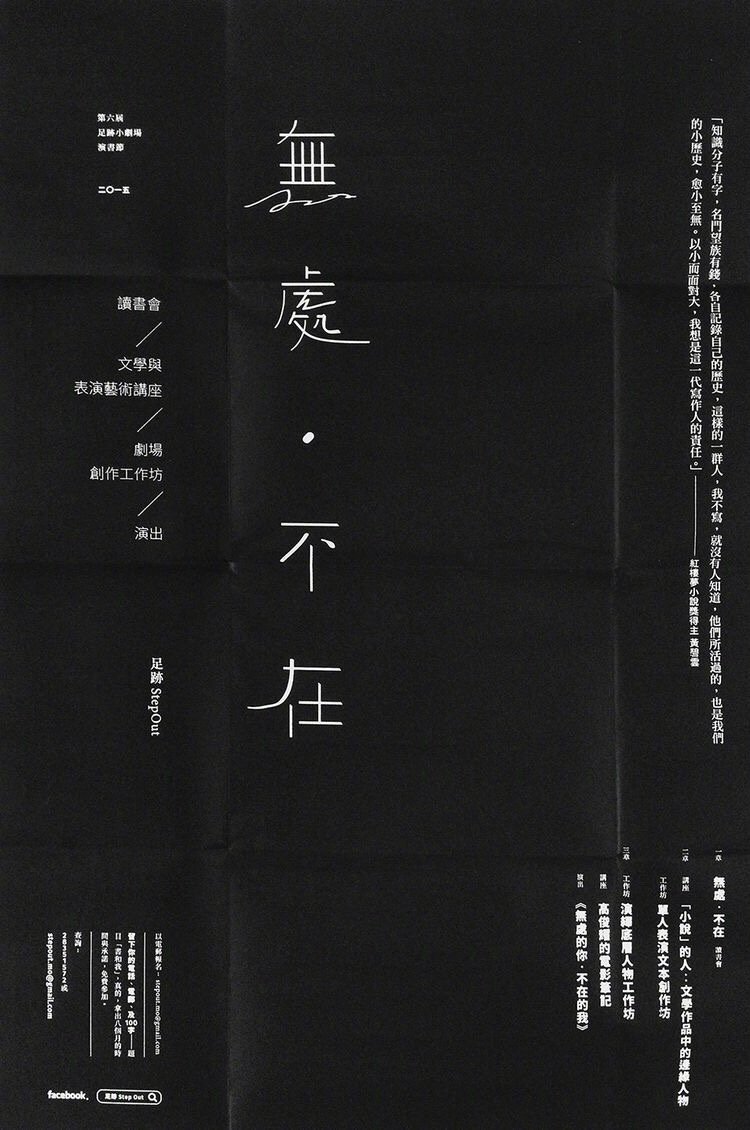 「知識分子有字，名門望族有錢，各自記錄自己的歷史，這樣的一群人，我不寫，就沒有人知道，他們所活過的，也是我們
的小歷史，愈小至無。以小而面對大，我想是這一代寫作人的責任。」——紅樓夢小說獎得主 黃碧雲
無處·不在
第六屆
足跡小劇場
演書節
二〇一五
讀書會
／
文學與
表演藝術講座
／
劇場
創作工作坊
／
演出
足跡 StepOut
一章 無處·不在 讀書會
二章 講座 「小說」的人：文學作品中的邊緣人物
工作坊 單人表演文本創作坊
三章 工作坊 演繹底層人物工作坊
講座 高俊耀的電影筆記
演出 《無處的你·不在的我》
以電郵報名：stepout.mo@gmail.com
留下你的電話、電郵、及100字——題
目「書和我」，真的，拿出八個月的時
間與承諾，免費參加。
查詢：
28351572 或
stepout.mo@gmail.com
facebook. 足跡 Step Out